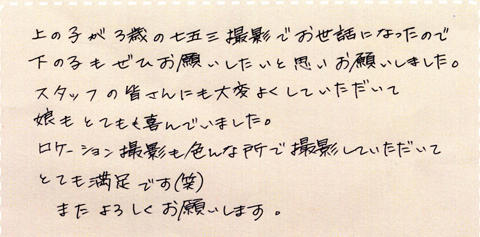 上の子が3歳の七五三撮影でお世話になったので
下の子もぜひお願いしたいと思いお願いしました。
スタッフの皆さんにも大変よくしていただいて
娘もとても喜んでいました。
ロケーション撮影も色んな所で撮影していただいて
とても満足です(笑)
またよろしくお願いします。